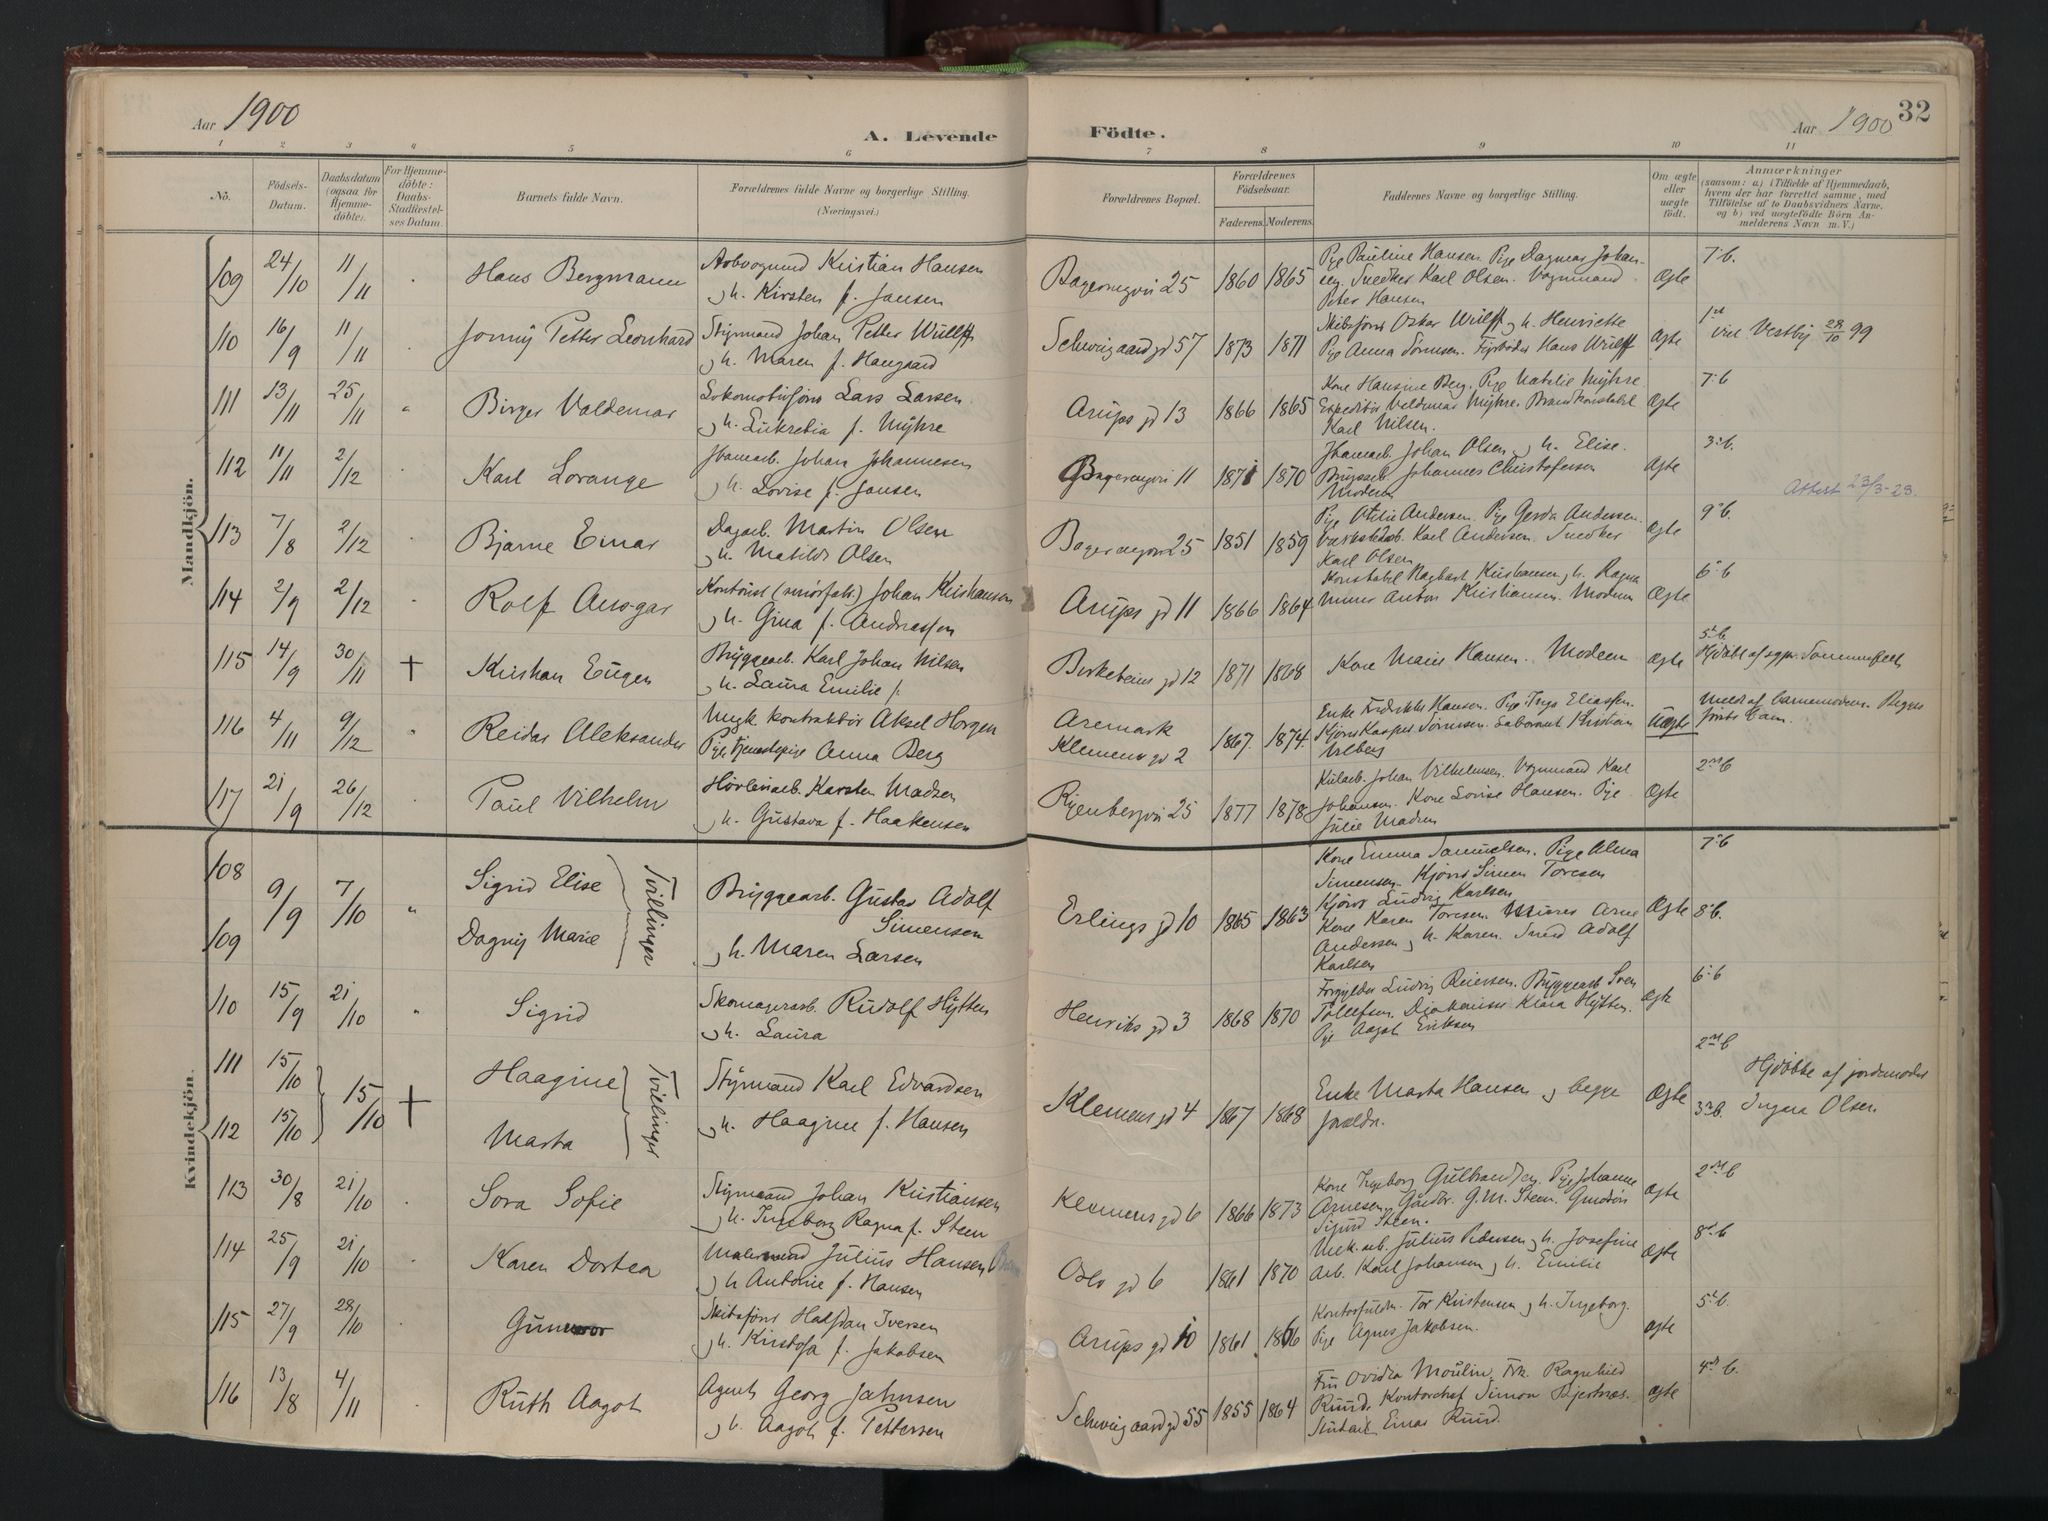 Aar 1900
A. Levende Födte.
Aar 1900
32
1 2 3 4 5 6 7 8 9 10 11
No.
Födsels-
Datum.
Daabsdatum
(ogsaa for
Hjemme-
döbte).
For Hjemme-
döbte:
Daabs-
Stadfæstel-
ses Datum.
Barnets fulde Navn.
Forældrenes fulde Navne og borgerlige Stilling.
(Næringsvei.)
Forældrenes Bopæl.
Forældrenes
Födselsaar.
Faderens. Moderens.
Faddernes Navne og borgerlige Stilling.
Om ægte
eller
uægte
födt.
Anmærkninger
(saasom: a) i Tilfælde af Hjemmedaab,
hvem der har forrettet samme, med
Tilföielse af to Daabsvidners Navne.
og b) ved uægtefödte Börn An-
melderens Navn m. V.)
Mandkjön.
109 24/10 11/11 Hans Bergmann
Kristian Hansen
h. Kirsten f. Jansen
25 1860 1865
Pige Pauline Hansen. Pige Dagmar Johan-
sen. Snedker Karl Olsen. Vognmand
Peter Hansen
Ægte 7. b.
110 16/9 11/11 Jonny Petter Leonhard
Styrmand Johan Petter Wulff
h. Maren f. Haugaard
Schweigaard gd 57 1873 1871
Skibsförer Oskar Wulff h. Henriette
Pige Anna Sörensen. Fyrböder Hans Wulff
Ægte 1st
Vestby 28/10 99
111 13/11 25/11 Birger Valdemar
Lokomotivförer Lars Larsen
h. Lukretia f. Myhre
Arups gd 13 1866 1865
Kone Hansine Berg. Pige Natalie Myhre
Expeditör Valdemar Myhre. Brandkonstabel
Karl Nilsen.
Ægte 7. b
112 11/11 2/12 Karl Lorange
Johan Johannesen
h. Lovise f. Jansen
11 1871 1870
Johan Olsen h. Elise.
Johannes Christofersen
Moderen
Ægte 3. b.
Attest 23/3-23.
113 7/8 2/12 Bjarne Einar
Dagarb. Martin Olsen
h. Matilde Olsen
25 1851 1859
Pige Otilie Andersen. Pige Gerda Andersen
Karl Andersen. Snedker
Karl Olsen
Ægte 9. b.
114 2/9 2/12 Rolf Ansgar
Johan Kristiansen
h. Gina f. Andreassen
Arups gd 11 1866 1864
Konstabel Kristiansen h. Ragna
Murer Anton Kristiansen. Moderen
Ægte 6. b
115 14/9 30/11 + Kristian Eugen
Bryggearb. Karl Johan Nilsen
h. Laura Emilie f.
Birkebeins gd 12 1871 1868
Kone Marie Hansen. Moderen
Ægte 5. b.
Hjdöbt af Sommerfelt
116 4/11 9/12 Reidar Aleksander
kontraktör Aksel Horgen
Pige Tjenestepige Anna Berg
Aremark
Klemens gd 2 1867. 1874.
Enke Fredrikke Hansen. Pige Inga Eliassen
Kjörer Kasper Sörensen. Laborant Kristian
Uægte
Meld af barnemoderen. Begges
förste barn.
117 21/9 26/12 Paul Vilhelm
Hövleriarb. Karsten Madsen
h. Gustava f. Haakensen
Ryenbergvei 25 1877 1878
Kularb. Johan Vilhelmsen. Vognmand Karl
Johansen. Kone Lovise Hansen. Pige
Julie Madsen
Ægte 2. b
Kvindekjön.
108 9/9 7/10 Sigrid Elise
109 Dagny Marie
Tvillinger
Bryggearb. Gustav Adolf
Simensen
h. Maren Larsen
Erlings gd 10 1865 1863
Kone Emma Samuelsen. Pige Alma
Simensen. Kjörer Simen Toresen
Kjörer Ludvig Karlsen
Kone Karen Toresen. Murer Arne
Andersen h. Karen. Smed Adolf
Karlsen
Ægte 7. b
8. b.
110 15/9 21/10 Sigrid
Skomagerarb. Rudolf Hytten
h. Laura
Henriks gd 3 1868 1870
Forgylder Ludvig Reiersen. Bryggearb Sven
Tollefsen. Diakonisse Klara Hytten.
Pige Aagot Eriksen
Ægte 6. b
111 15/10 Haagine
112 15/10 Marta
15/10 +
Tvillinger
Styrmand Karl Edvardsen
h. Haagine f. Hansen
Klemens gd 4 1867 1868
Enke Marta Hansen begge
foreldr.
Ægte 2. b
3. b.
Hjdöbte af jordmoder
Ingara Olsen
113 30/8 21/10 Sora Sofie
Styrmand Johan Kristiansen
h. Ingeborg Ragna f. Steen
Klemens gd 6 1866 1873
Kone Ingeborg Gulbrandsen. Pige Johanne
Arnesen. Gaardbr. G. M. Steen.
Sigurd Steen.
Ægte 2. b
114 25/9 21/10 Karen Dortea
Julius Hansen
h Antonie f. Hansen
Oslo gd 6 1861 1870
Mek. arb. Julius Pedersen h. Josefine
Arb. Karl Johansen h. Emilie
Ægte 8. b
115 27/9 28/10 Gunvor
Skibsförer Halfdan Iversen
h. Kristofa f. Jakobsen
Arups gd 10 1861. 1866
Tor Kristensen h. Ingeborg.
Pige Agnes Jakobsen.
Ægte 5. b.
116 13/8 4/11 Ruth Aagot
Agent Georg Jahnsen
h. Aagot f. Pettersen
Schweigaard gd 55 1855 1864
Fru Ovidia Moulin. Frk. Ragnhild
Ruud. Kontorchef Simon Bjertnæs.
Student Einar Ruud.
Ægte 4. b.